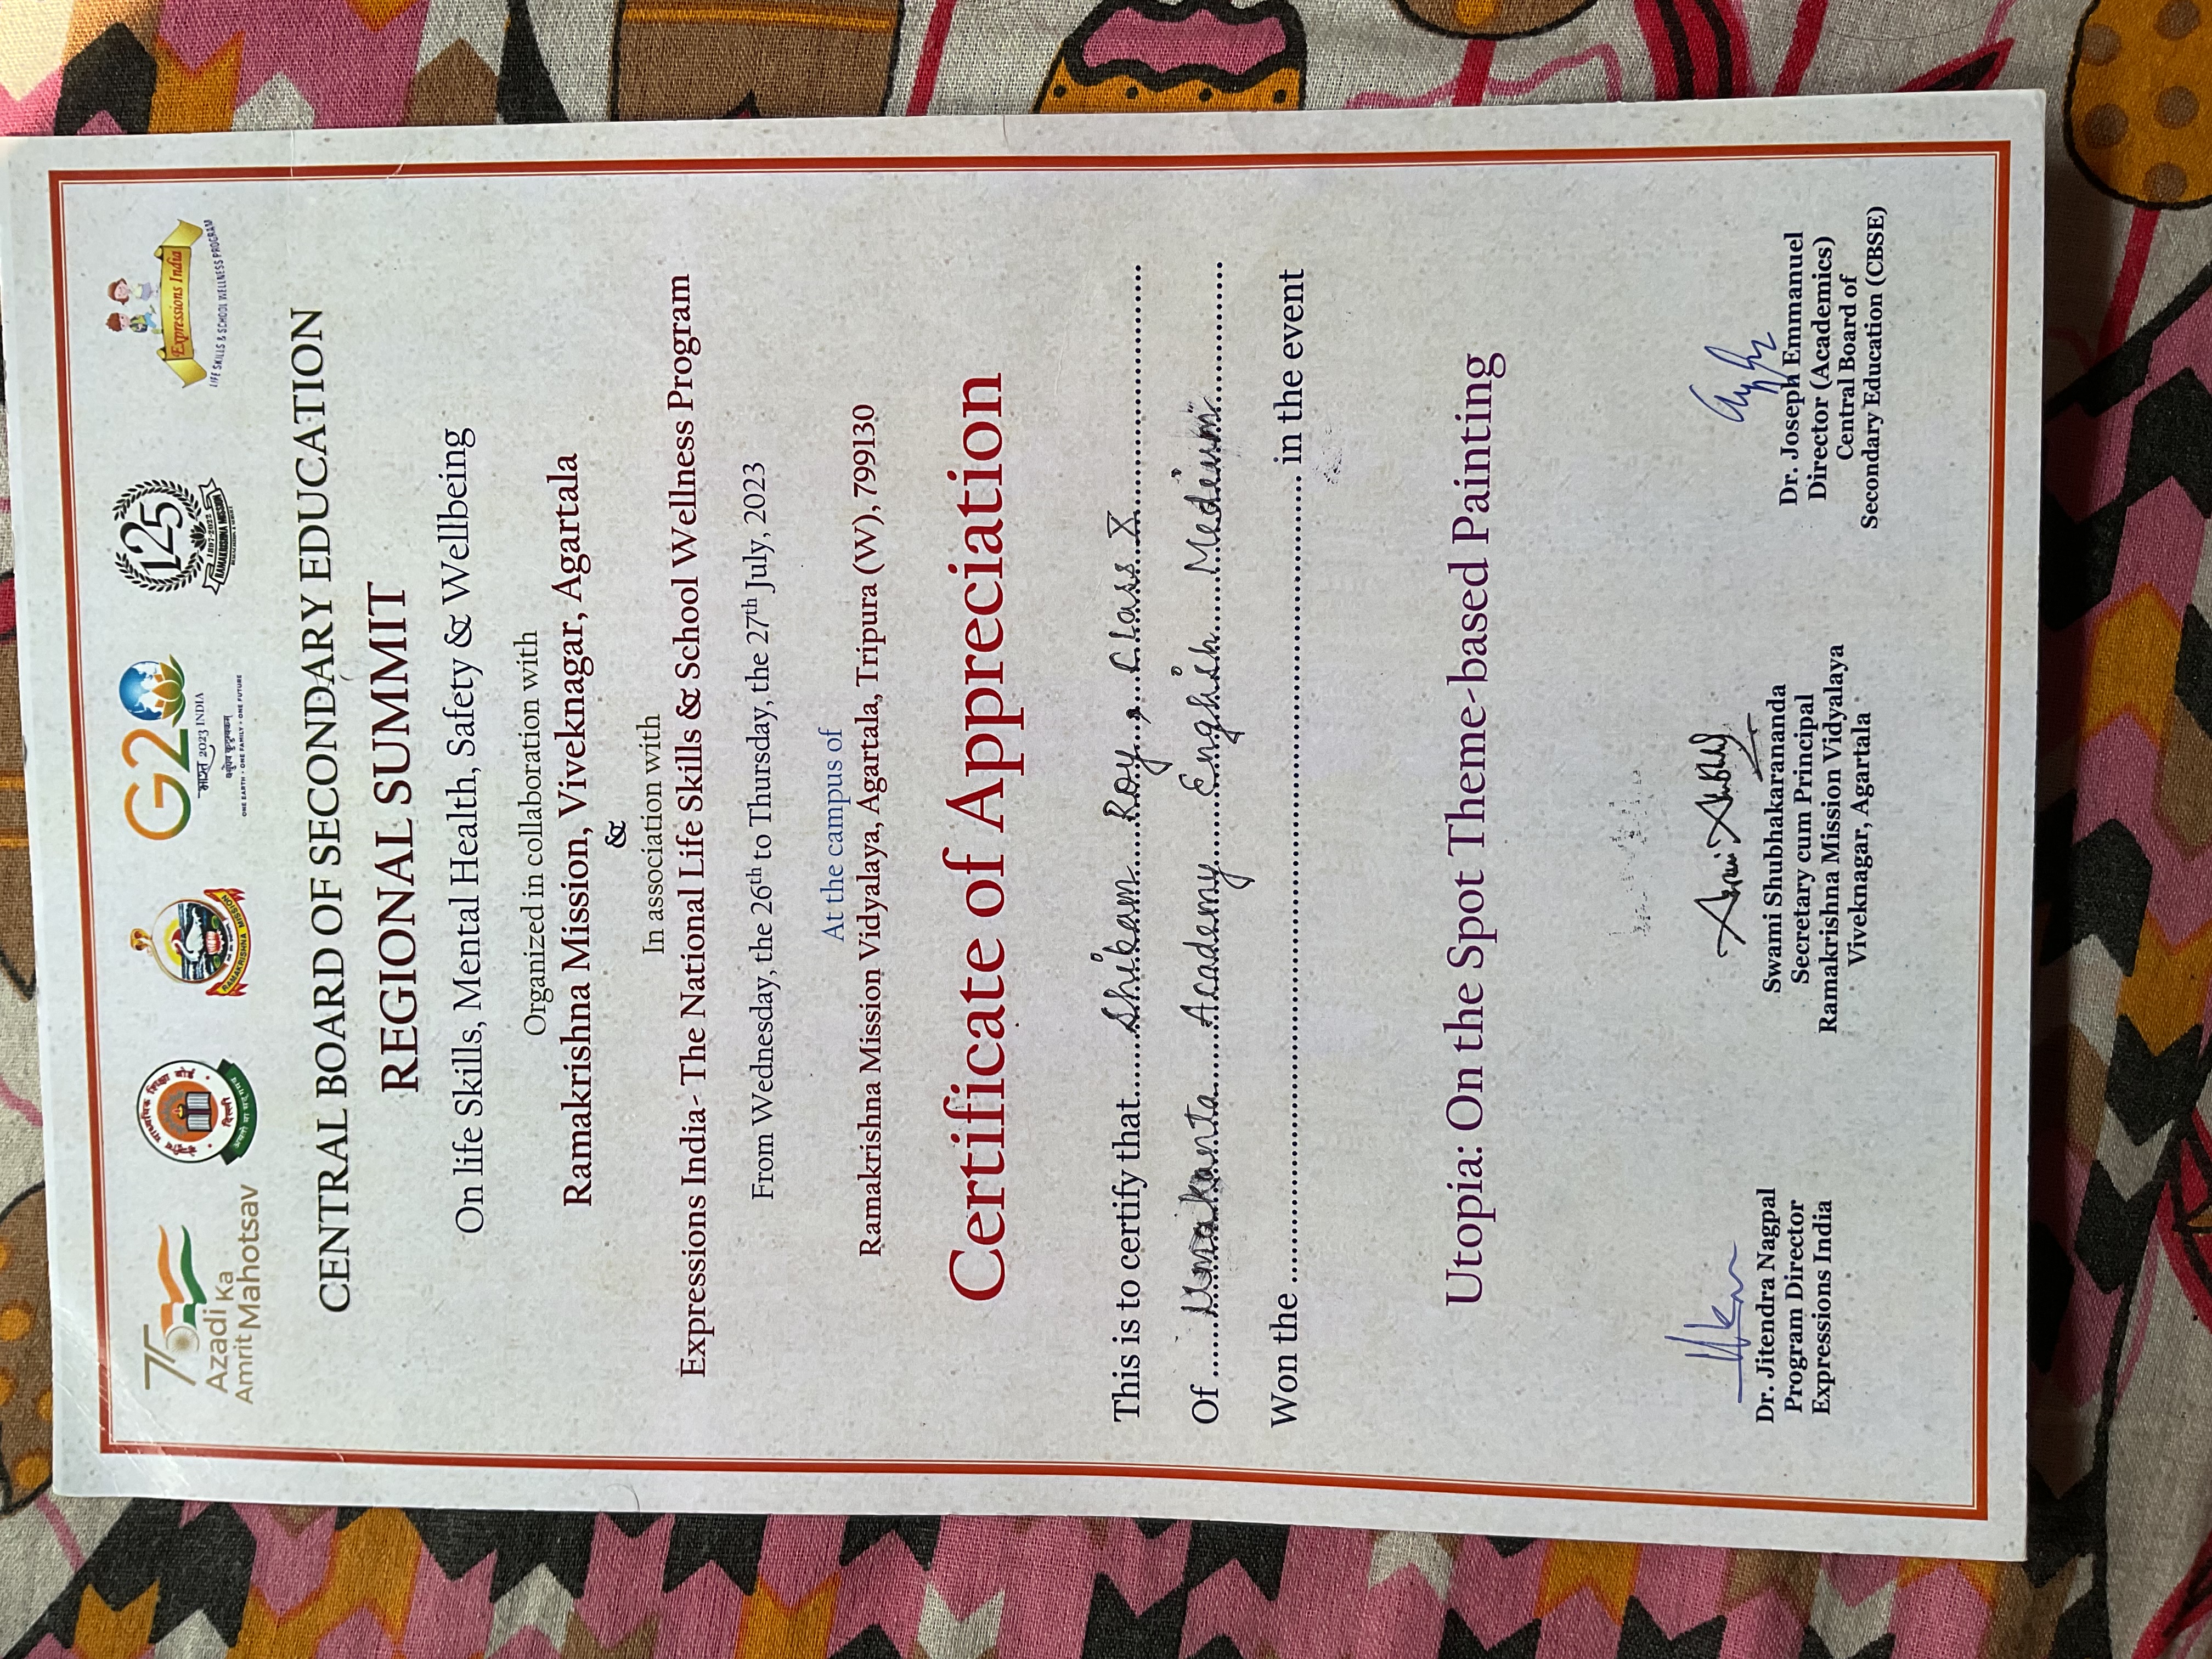 75
Azadi Ka
Amrit Mahotsav
केन्द्रीय माध्यमिक शिक्षा बोर्ड
दिल्ली
असतो मा सद् गमय
RAMAKRISHNA MISSION
G20
भारत 2023 INDIA
वसुधैव कुटुम्बकम्
ONE EARTH • ONE FAMILY • ONE FUTURE
125
1897-2022
RAMAKRISHNA MISSION
Expressions India
LIFE SKILLS & SCHOOL WELLNESS PROGRAM
CENTRAL BOARD OF SECONDARY EDUCATION
REGIONAL SUMMIT
On life Skills, Mental Health, Safety & Wellbeing
Organized in collaboration with
Ramakrishna Mission, Viveknagar, Agartala
&
In association with
Expressions India- The National Life Skills & School Wellness Program
From Wednesday, the 26th to Thursday, the 27th July, 2023
At the campus of
Ramakrishna Mission Vidyalaya, Agartala, Tripura (W), 799130
Certificate of Appreciation
This is to certify that......Shikam Roy, Class X......
Of......Umakanta Academy English Medium......
Won the ...... in the event
Utopia: On the Spot Theme-based Painting
Dr. Jitendra Nagpal
Program Director
Expressions India
Swami Shubhakarananda
Secretary cum Principal
Ramakrishna Mission Vidyalaya
Viveknagar, Agartala
Dr. Joseph Emmanuel
Director (Academics)
Central Board of
Secondary Education (CBSE)